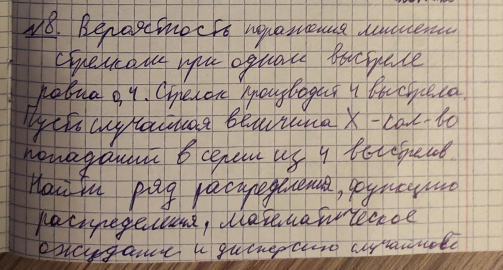 №8. Вероятность поражения мишени
стрелком при одном выстреле
равна 0,4. Стрелок производит 4 выстрела.
Пусть случайная величина X - кол-во
попаданий в серии из 4 выстрелов.
Найти ряд распределения, функцию
распределения, математическое
ожидание и дисперсию случайной